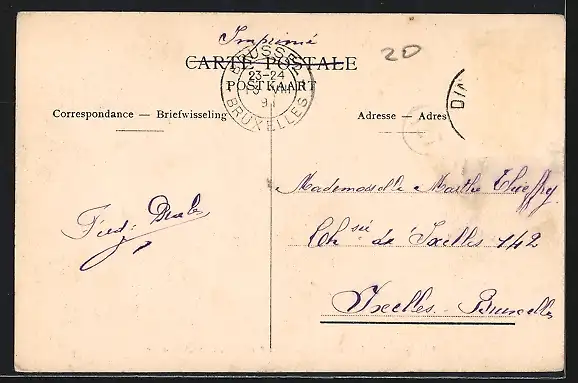 Imprimé
20
CARTE POSTALE
POSTKAART
BRUSSEL
23-24
BRUXELLES
Correspondance — Briefwisseling
Adresse — Adres
Mademoiselle Marthe Thieffry
Ch sée de Ixelles 142
Ixelles - Bruxelles
Féd: